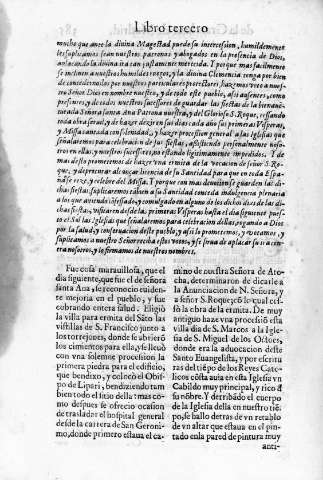 Libro tercero
mucho que ante la divina Magestad puede su intercession, humildemente
les suplicamos sean nuestros patronos y abogados en la presencia de Dios,
aplacando la divina ira tan justamente merecida. Y porque mas facilmente
se inclinen a nuestros humildes ruegos, y la divina Clemencia tenga por bien
de concedernoslos por nuestros particulares protectores, hazemos voto a nuestro
Señor Dios en nombre nuestro, y de todo este pueblo, assi ausentes, como
presentes, y de todos nuestros sucessores de guardar las fiestas de la bienaventurada
Señora santa Ana Patrona nuestra, y del Glorioso S. Roque, cessando
toda obra servil, y de hazer dezir en sus dias cada año sus primeras Visperas,
y Missa cantada con solenidad, y hazer procession general a las Iglesias que
señalaremos para celebracion de sus fiestas, assistiendo personalmente nosotros
en ellas, y nuestros sucessores, no estando legitimamente impedidos. Y demas
desto prometemos de hazer una ermita de la vocacion de señor S. Roque,
y de procurar alcançar licencia de su Santidad para que en toda España
se reze, y celebre del Missa. Y porque con mas devocion se guarden las dichas
fiestas, suplicaremos tambien a su Santidad conceda indulgencia plenaria
a los que aviendo confessado, y comulgado en alguno de los dichos dias de las dichas
fiestas, visitaren desde las primeras Visperas hasta el dia siguiente puesto
el Sol las Iglesias que señalaremos para celebracion dellas, rogando a Dios
por la salud, y conservacion deste pueblo, y assi lo prometemos, y votamos, y
suplicamos a nuestro Señor reciba estos votos, y se sirva de aplacar su ira contra
nosotros, y lo firmamos de nuestros nombres.
Fue cosa maravillosa, que el
dia siguiente, que fue el de señora
santa Ana, se reconocio evidente
mejoria en el pueblo, y fue
cobrando entera salud. Eligiò
la villa para ermita del Sãto las
vistillas de S. Francisco junto a
los torrejones, donde se abrierõ
los cimientos para ella, y se llevò
con vna solemne procession la
primera piedra para el edificio,
que bendixo, y colocò el Obispo
de Lipari, bendiziendo tambien
todo el sitio della: mas como
despues se ofrecio ocasion
de trasladar el hospital general
desde la carrera de San Geronimo,
donde primero estaua el camino
de nuestra Señora de Atocha,
determinaron de dicarle a
la Anunciacion de N. Señora, y
a señor S. Roque; cõ lo qual cessò
la obra de la ermita. De muy
antiguo haze vna processiõ esta
villa dia de S. Marcos a la Iglesia
de S. Miguel de los Octoes,
donde era la aduocacion deste
Santo Euangelista, y por escrituras
del tiẽpo de los Reyes Catolicos
cõsta auia en esta Iglesia vn
Cabildo muy principal, y rico d
su nõbre. Y derribãdo el cuerpo
de la Iglesia della en nuestro tiẽpo,
se hallo detras de vn retablo
de vn altar que estaua en el pintado
en la pared de pintura muy
anti-